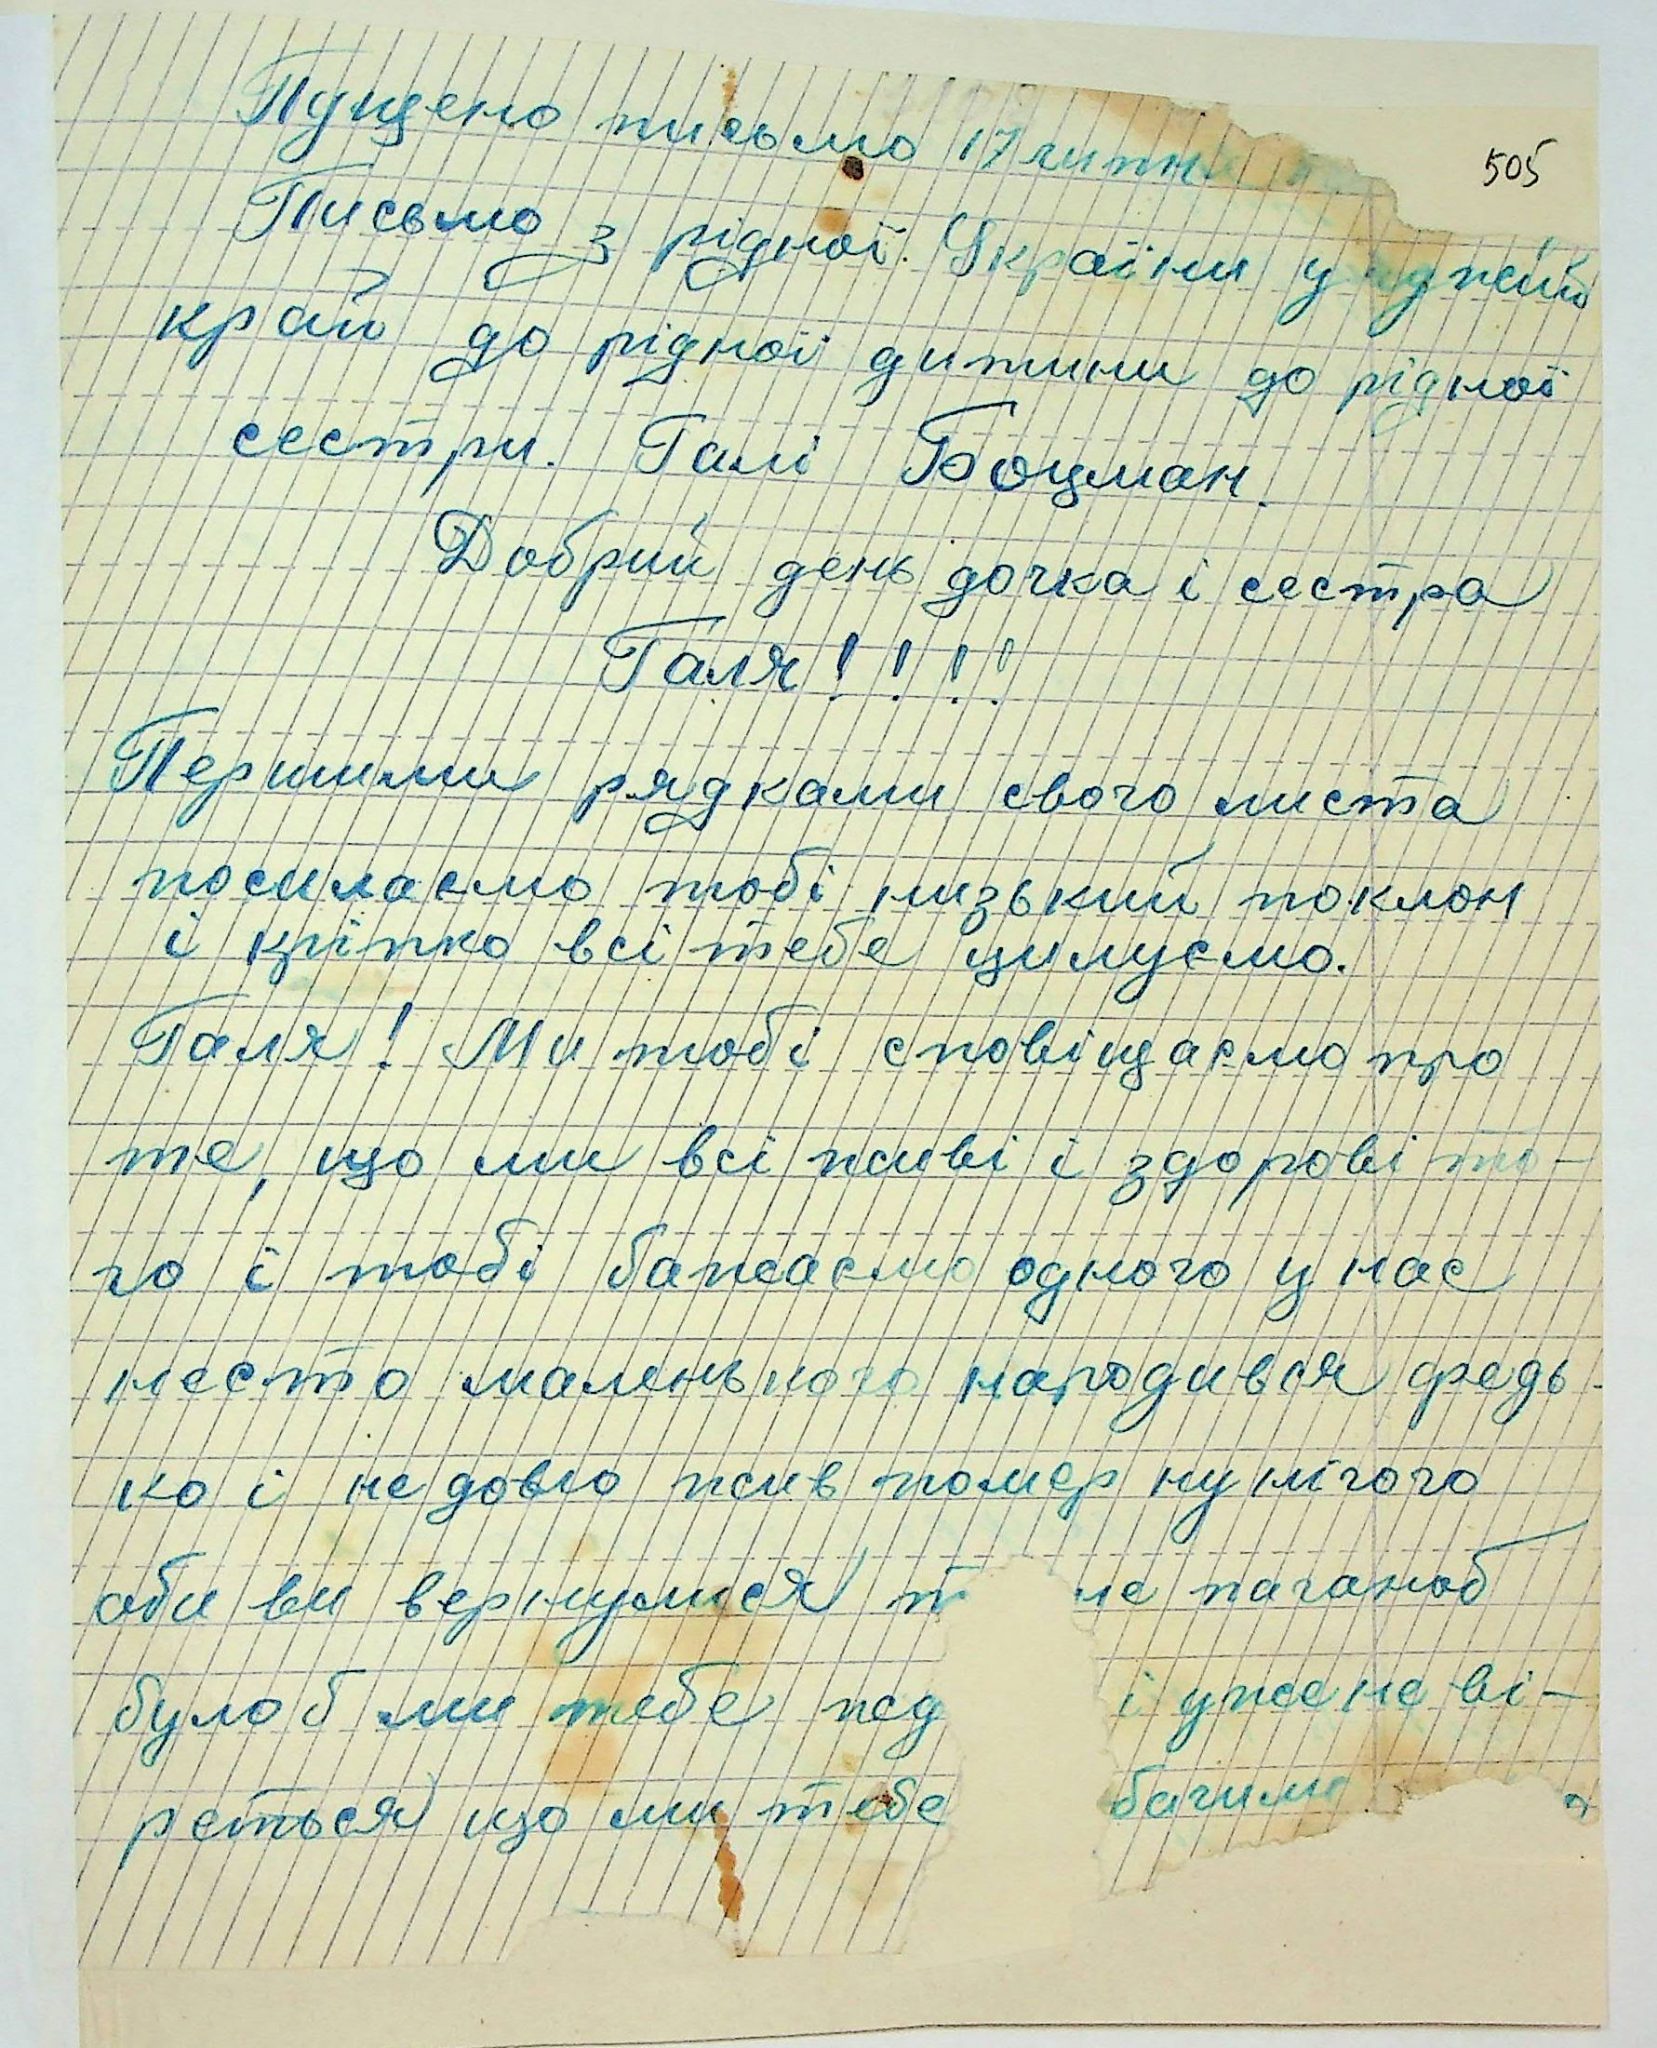 505
Пущено письмо 17 липня
Письмо з рідної. України у чужий
край до рідної дитини до рідної
сестри. Галі Боцман.
Добрий день дочка і сестра
Галя!!!!
Першими рядками свого листа
посилаємо тобі низький поклон
і кріпко всі тебе цилуємо.
Галя! Ми тобі сповіщаємо про
те, що ми всі живі і здорові то-
го і тобі бажаємо одного у нас
нєсто маленького народився федь-
ко і не довго жив помер ну нічого
аби ви вернулися паганоб
було б ми тебе жед і уже не ві-
рється що ми тебе бачим